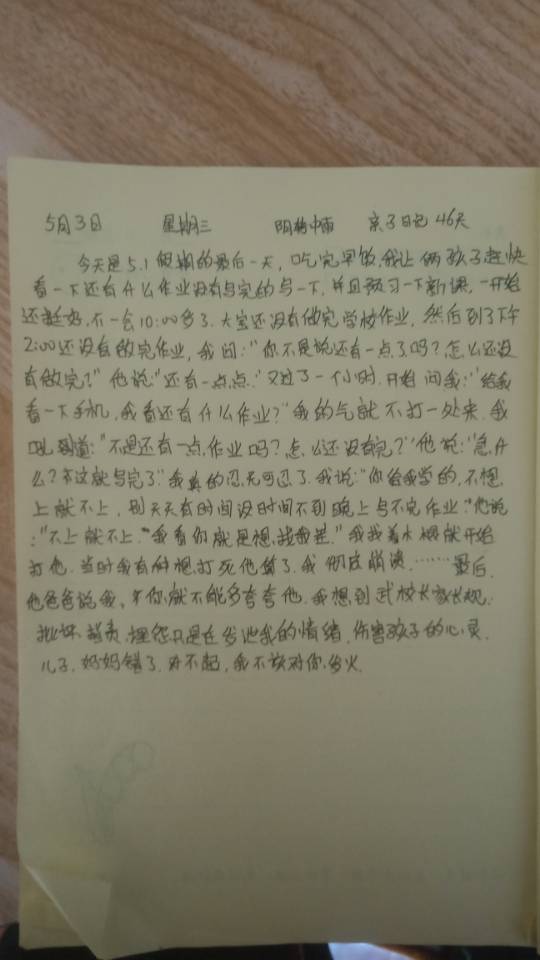 5月3日 星期三 阴转中雨 亲子日记46天
今天是5.1假期的最后一天，吃完早饭，我让俩孩子赶快
看一下还有什么作业没有写完的写一下，并且预习一下新课，一开始
还挺好，不一会10:00多了，大宝还没有做完学校作业，然后到了下午
2:00还没有做完作业，我问："你不是说还有一点了吗？怎么还没
有做完？"他说："还有一点点，"又过了一个小时，开始问我："给我
看一下手机，我看还有什么作业？"我的气就不打一处来，我
吼到道："不是还有一点作业吗？怎么还没有完？"他说："急什
么？这就写完了"我真的忍无可忍了，我说："你给我学的，不想
上就不上，别天天有时间没时间不到晚上写不完作业"他说
："不上就不上，"我看你就是想找我茬"我找着木棍就开始
打他，当时我有种想打死他算了，我彻底崩溃……最后，
他爸爸说我，你就不能多夸夸他，我想到武校长家长规
批评 指责 埋怨只是在发泄我的情绪，伤害孩子的心灵，
儿子，妈妈错了，对不起，我不该对你发火.